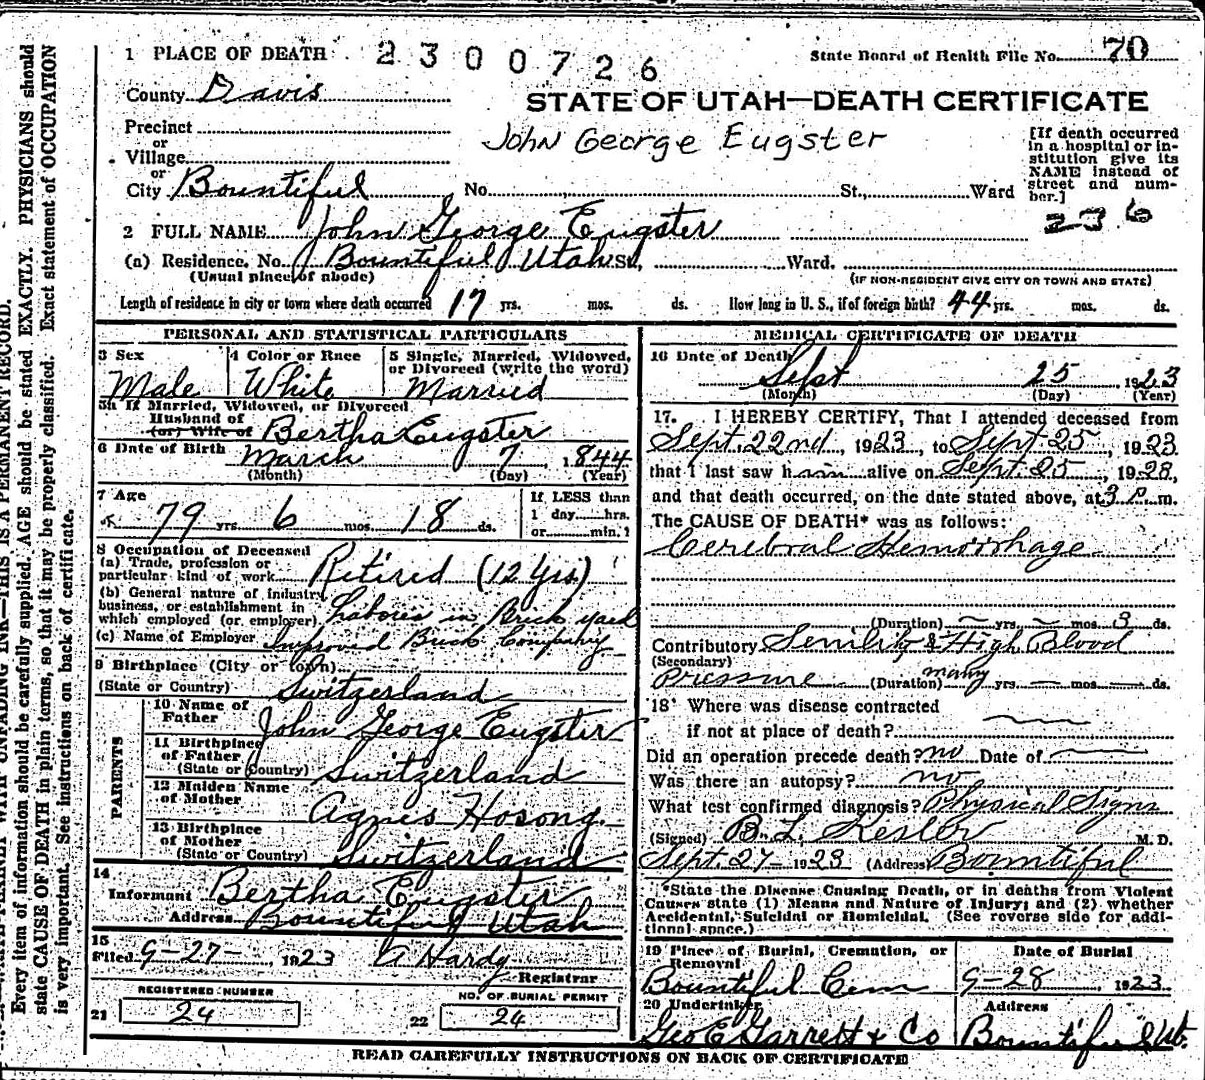 1 PLACE OF DEATH 2300726 State Board of Health File No. 70
County Davis
STATE OF UTAH—DEATH CERTIFICATE
Precinct
or
Village
or
John George Eugster
[If death occurred
in a hospital or in-
stitution give its
NAME instead of
street and num-
ber.]
City Bountiful No. St., Ward
236
2 FULL NAME John George Eugster
(a) Residence. No. Bountiful Utah St., Ward.
(Usual place of abode) (IF NON-RESIDENT GIVE CITY OR TOWN AND STATE)
Length of residence in city or town where death occurred 17 yrs. mos. ds. How long in U. S., if of foreign birth? 44 yrs. mos. ds.
PERSONAL AND STATISTICAL PARTICULARS
3 Sex 4 Color or Race 5 Single, Married, Widowed,
or Divorced (write the word)
Male White Married
5a If Married, Widowed, or Divorced
Husband of
(or) Wife of Bertha Eugster
6 Date of Birth March 7, 1844
(Month) (Day) (Year)
7 Age If LESS than
1 day hrs.
79 yrs. 6 mos. 18 ds. or min.?
8 Occupation of Deceased
(a) Trade, profession or
particular kind of work Retired (12 Yrs)
(b) General nature of industry,
business, or establishment in
which employed (or employer) Laborer in Brick yard
(c) Name of Employer Improved Brick Company
9 Birthplace (City or town)
(State or Country) Switzerland
PARENTS
10 Name of
Father John George Eugster
11 Birthplace
of Father
(State or Country) Switzerland
12 Maiden Name
of Mother Agnes Hosong
13 Birthplace
of Mother
(State or Country) Switzerland
14
Informant Bertha Eugster
Address Bountiful Utah
15
Filed 9-27-, 1923 A Hardy
Registrar
REGISTERED NUMBER NO. OF BURIAL PERMIT
21 24 22 24
MEDICAL CERTIFICATE OF DEATH
16 Date of Death
Sept 25, 1923
(Month) (Day) (Year)
17. I HEREBY CERTIFY, That I attended deceased from
Sept. 22nd, 1923, to Sept 25, 1923
that I last saw him alive on Sept. 25, 1923,
and that death occurred, on the date stated above, at 3 P. m.
The CAUSE OF DEATH* was as follows:
Cerebral Hemorrhage
(Duration) — yrs. — mos. 3 ds.
Contributory Senility & High Blood
(Secondary)
Pressure (Duration) many yrs. — mos. — ds.
18 Where was disease contracted
if not at place of death?
Did an operation precede death? no Date of
Was there an autopsy? no
What test confirmed diagnosis? Physical Signs
(Signed) B. L. Kesler M. D.
Sept. 27- 1923 (Address) Bountiful
*State the Disease Causing Death, or in deaths from Violent
Causes state (1) Means and Nature of Injury; and (2) whether
Accidental, Suicidal or Homicidal. (See reverse side for addi-
tional space.)
19 Place of Burial, Cremation, or
Removal Date of Burial
Bountiful Cem 9-28, 1923
20 Undertaker Address
Geo E Garrett & Co Bountiful Ut.
READ CAREFULLY INSTRUCTIONS ON BACK OF CERTIFICATE
THIS IS A PERMANENT RECORD.
Every item of information should be carefully supplied. AGE should be stated EXACTLY. PHYSICIANS should
state CAUSE OF DEATH in plain terms, so that it may be properly classified. Exact statement of OCCUPATION
is very important. See instructions on back of certificate.